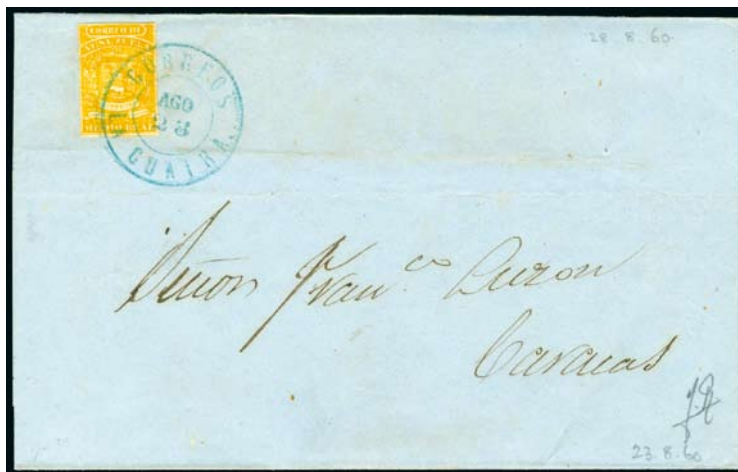 CORREO DE
VENEZUELA
MEDIO REAL
CORREOS
AGO
23
LA GUAIRA
28.8.60
Señor Fran.co Duron
Caracas
23.8.60